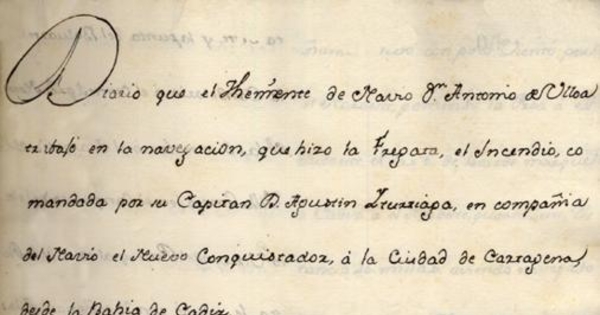 Diario que el Theniente de Navio Dn. Antonio de Ulloa
trabajó en la navegacion, que hizo la Fregata, el Incendio, co
mandada por su Capitan D. Agustin Iturriaga, en compañia
del Navio el Nuevo Conquistador, á la Ciudad de Cartagena,
desde la Bahia de Cadiz